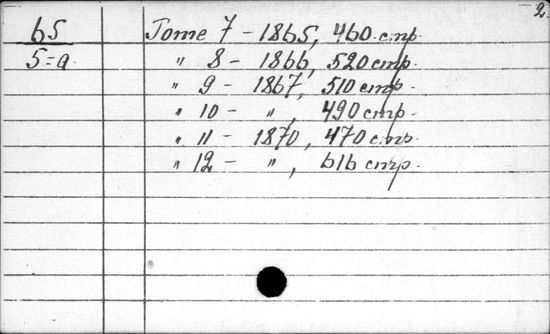 2.
65
5=a
Tome 7 - 1865, 460 стр.
" 8 - 1866, 520 стр.
" 9 - 1867, 510 стр.
" 10 - ", 490 стр.
" 11 - 1870, 470 стр.
" 12 - ", 616 стр.